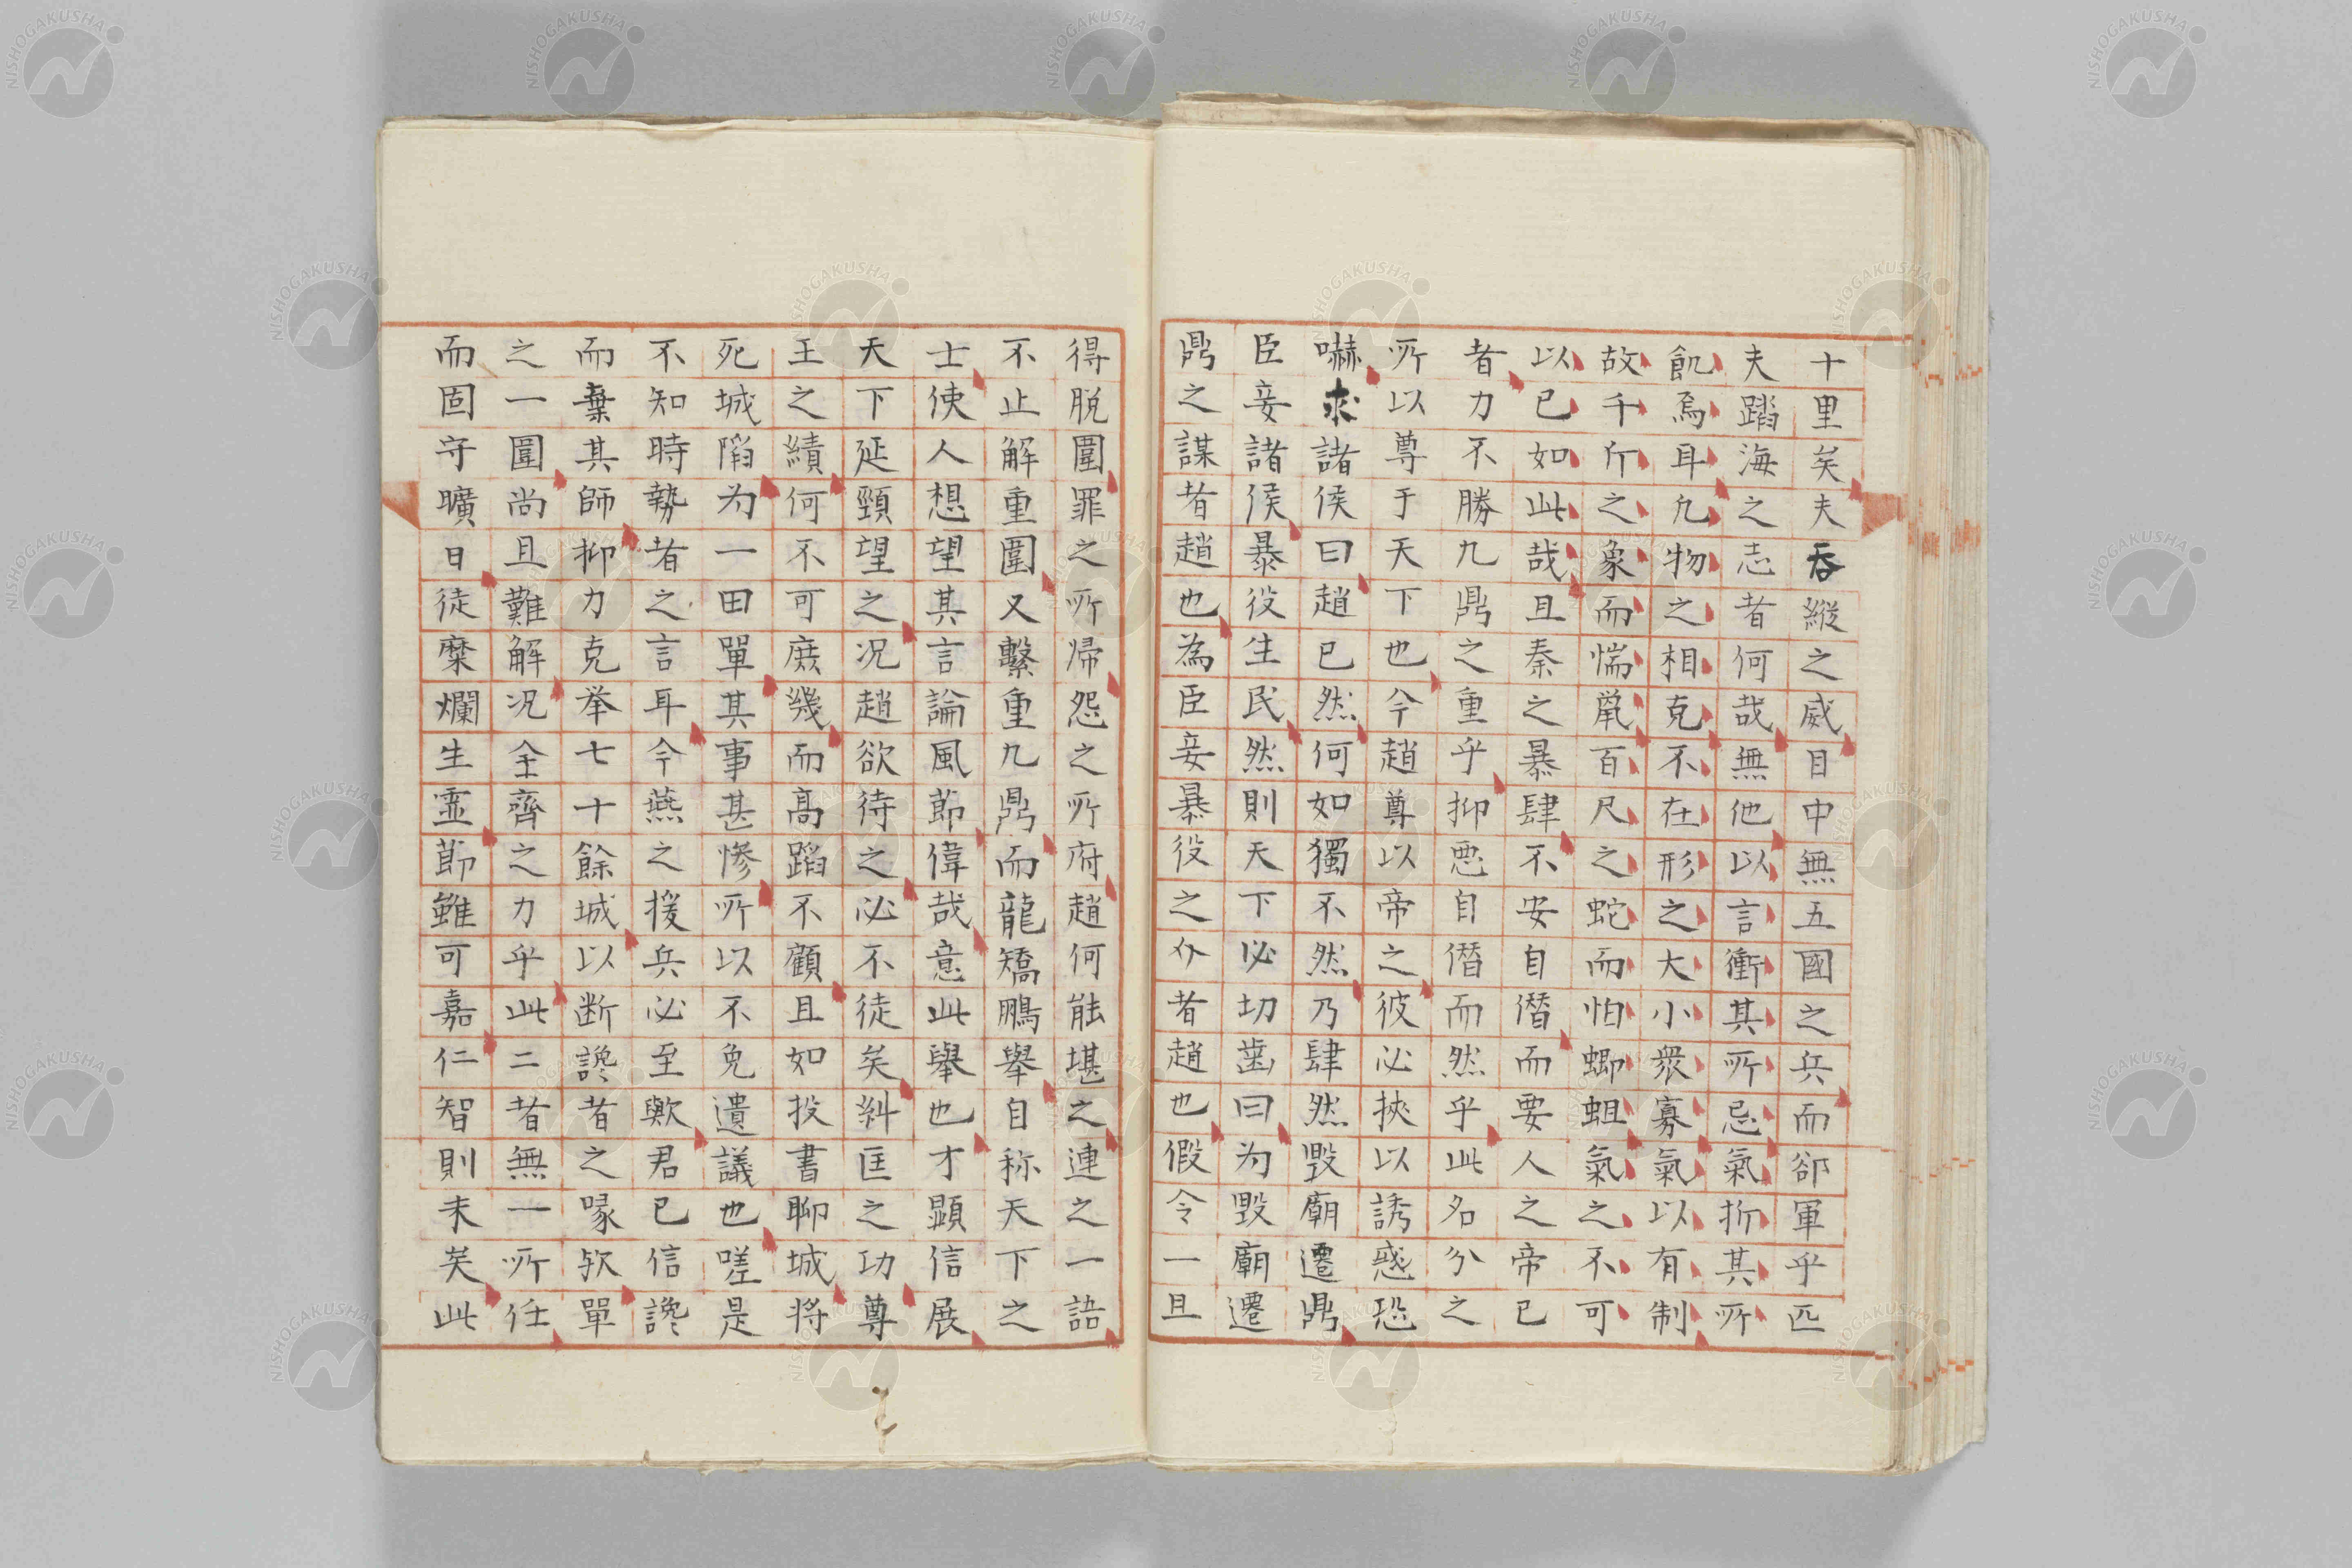 十里矣夫吞縦之威目中無五國之兵而卻軍乎匹
夫蹈海之志者何哉無他以言衝其所忌氣折其所
飢焉耳凡物之相克不在形之大小衆寡氣以有制
故千斤之象而惴鼠百尺之蛇而怕蝍蛆氣之不可
以已如此哉且秦之暴肆不安自僭而要人之帝已
者力不勝九鼎之重乎抑悪自僭而然乎此名分之
所以尊于天下也今趙尊以帝之彼必挾以誘惑恐
嚇求諸侯曰趙已然何如獨不然乃肆然毀廟遷鼎
臣妾諸侯暴役生民然則天下必切歯曰为毀廟遷
鼎之謀者趙也為臣妾暴役之仆者趙也假令一旦
得脱圍罪之所帰怨之所府趙何能堪之連之一語
不止解重圍又繫重九鼎而龍矯鵬舉自称天下之
士使人想望其言論風節偉哉意此舉也才顕信展
天下延頸望之况趙欲待之必不徒矣糾匡之功尊
王之績何不可庶幾而高蹈不顧且如投書聊城将
死城陥为一田單其事甚惨所以不免遺議也嗟是
不知時勢者之言耳今燕之援兵必至歟君已信讒
而棄其師抑力克挙七十餘城以断讒者之喙欤單
之一圍尚且難解况全齊之力乎此二者無一所任
而固守曠日徒糜爛生霊節雖可嘉仁智則未矣此